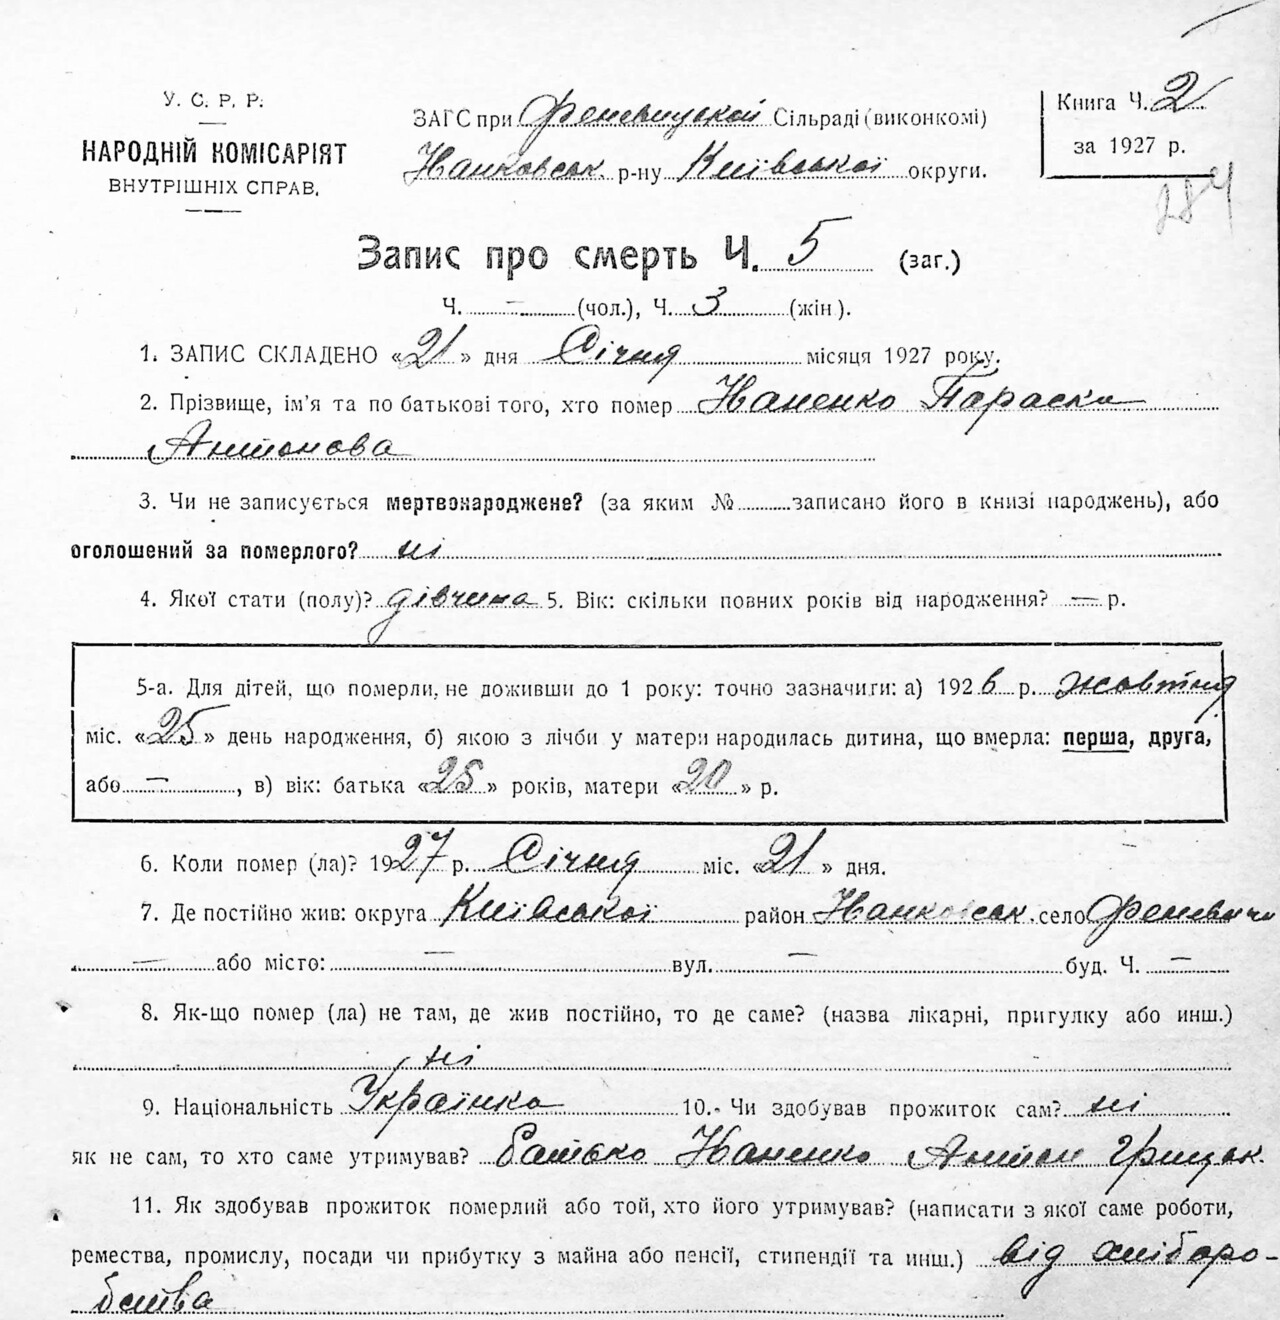 У. С. Р. Р.
НАРОДНІЙ КОМІСАРІЯТ
ВНУТРІШНІХ СПРАВ.
ЗАГС при Феневицькой Сільраді (виконкомі)
р-ну Київської округи.
Книга Ч. 2
за 1927 р.
284
Запис про смерть Ч. 5 (заг.)
Ч. — (чол.), Ч. 3 (жін).
1. ЗАПИС СКЛАДЕНО «21» дня Січня місяця 1927 року.
2. Прізвище, ім'я та по батькові того, хто помер Параска
Антонова
3. Чи не записується мертвонароджене? (за яким № записано його в книзі народжень), або
оголошений за померлого? ні
4. Якої стати (полу)? дівчина 5. Вік: скільки повних років від народження? — р.
5-а. Для дітей, що померли, не доживши до 1 року: точно зазначити: а) 1926 р. жовтня
міс. «25» день народження, б) якою з лічби у матери народилась дитина, що вмерла: перша, друга,
або — , в) вік: батька «25» років, матери «20» р.
6. Коли помер (ла)? 1927 р. Січня міс. «21» дня.
7. Де постійно жив: округа Київської район село Феневичи
— або місто: — вул. — буд. Ч. —
8. Як-що помер (ла) не там, де жив постійно, то де саме? (назва лікарні, пригулку або инш.)
ні
9. Національність Українка 10. Чи здобував прожиток сам? ні
як не сам, то хто саме утримував? батько Антон Грицьк.
11. Як здобував прожиток померлий або той, хто його утримував? (написати з якої саме роботи,
ремества, промислу, посади чи прибутку з майна або пенсії, стипендії та инш.) від хліборо-
бства